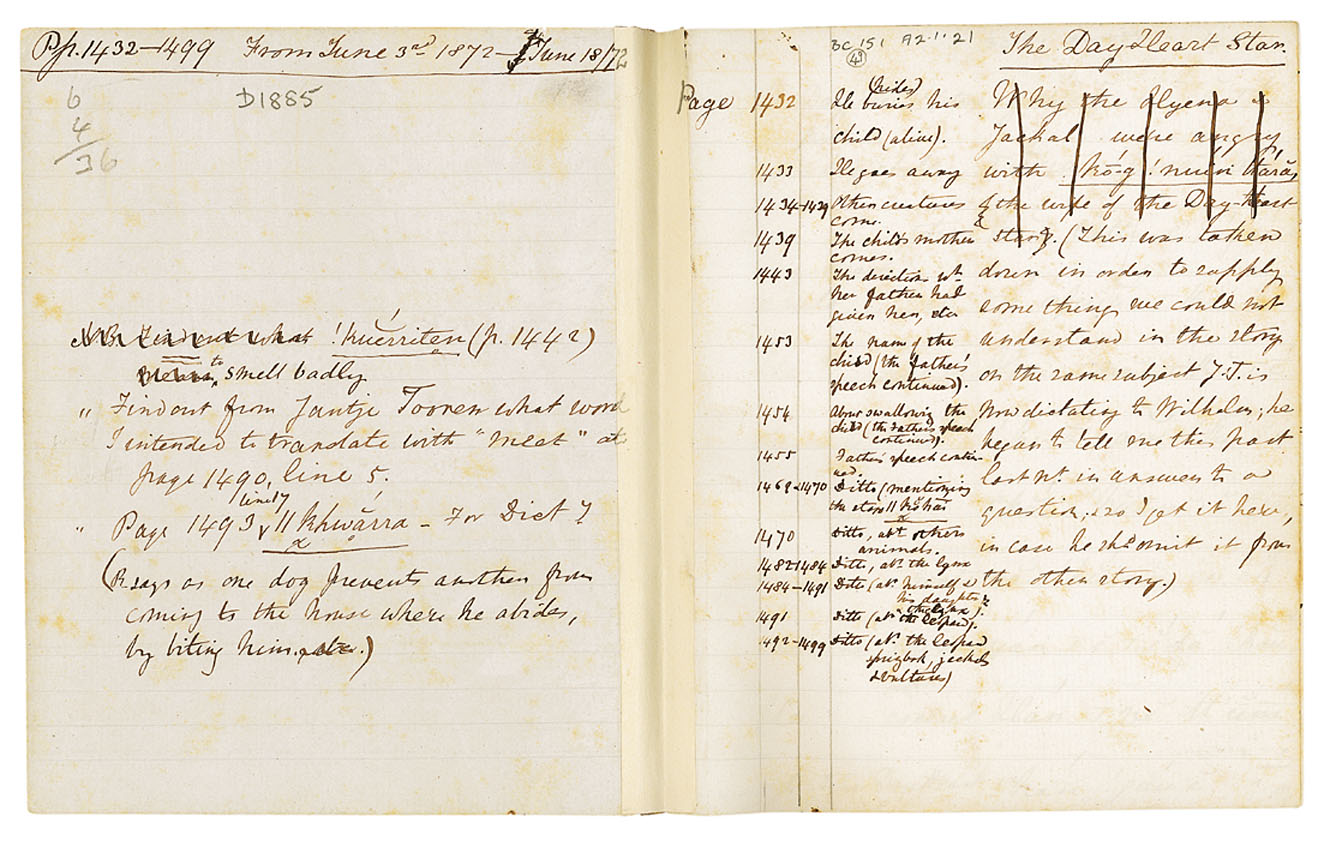 Pp. 1432—1499 From June 3rd 1872— June 18/72
D1885
6
4
36
N.B. Find out what !kuerriten (p. 1442)
means, to smell badly
" Find out from Jantje Tooren what word
I intended to translate with "meet" at
page 1490, line 5.
line 17
" Page 1493 ‖khwárra – For Dict?
(R says as one dog prevents another from
coming to the house where he abides,
by biting him. etc.)
BC 151 A2.1.21
The Day Heart Star.
Page 1432 He buries his
(hides)
child (alive).
1433 He goes away
1434–1439 Other creatures
come.
1439 The child's mother
comes.
1443 The directions wh
her father had
given her, etc
1453 The name of the
child (the father's
speech continued).
1454 About swallowing the
child (the Father's speech
continued).
1455 Father's speech contin-
ued.
1469–1470 Ditto (mentioning
the star
1470 Ditto, abt. others
animals.
1482–1484 Ditto, abt. the lynx
1484–1491 Ditto (abt. himself &
his daughter
the lynx).
1491 Ditto (abt. the leopard).
1492–1499 Ditto (abt. the leopard
springbok, jackals
& vultures)
Why the Hyena &
Jackal were angry
with
& the wife of the Day-Heart
Star. (This was taken
down in order to supply
something we could not
understand in the story
on the same subject J.T. is
now dictating to Wilhelm; he
began to tell me this part
last nt. in answer to a
question; & so I get it here,
in case he shd. omit it from
the other story.)